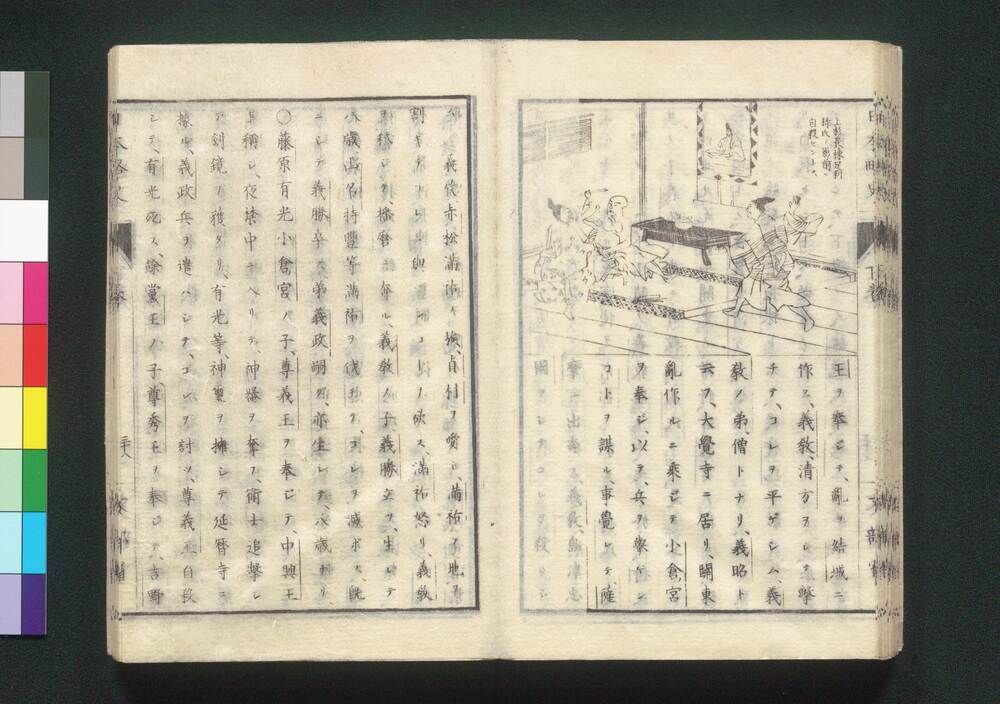 持氏ノ影前ニ
自殺セントス
日本略史 下卷 文部省
王ヲ奉ジテ、亂ヲ結城ニ
作ス、義敎、清方ヲシテ撃
チテ、コレヲ平ゲシム、義
敎ノ弟、僧トナリ、義昭ト
云フ、大覺寺ニ居リ、關東
亂作ルニ乘ジテ、小倉宮
ヲ奉ジ、以テ兵ヲ擧ゲン
コトヲ謀ル、事覺レテ、薩
摩ニ出奔ス、義敎、島津忠
國ヲシテ、コレヲ殺サシ
義敎、赤松滿祐ノ族、貞村ヲ愛シ、滿祐ノ地ヲ
割キテ、滿祐怒リ、義敎
弑シ、播磨ニ奔ル、義敎ノ子義勝立ツ、生レテ
八歳、山名持豐等、滿祐ヲ伐チテ、コレヲ滅ボス、既
ニシテ、義勝卒ス、弟義政嗣グ、亦生レテ、八歳ナリ、
○藤原有光、小倉宮ノ子、尊義王ヲ奉ジテ、中興王
ト稱シ、夜、禁中ニ入リテ、神器ヲ奪フ、衛士追撃シ
テ、劍鏡ヲ獲タリ、有光等、神璽ヲ擁シテ、延暦寺ニ
據ル、義政、兵ヲ遣ハシテ、コレヲ討ツ、尊義王自殺
シテ、有光死ス、餘黨、王ノ子、尊秀王ヲ奉ジテ、吉野
日本略史 下卷 文部省